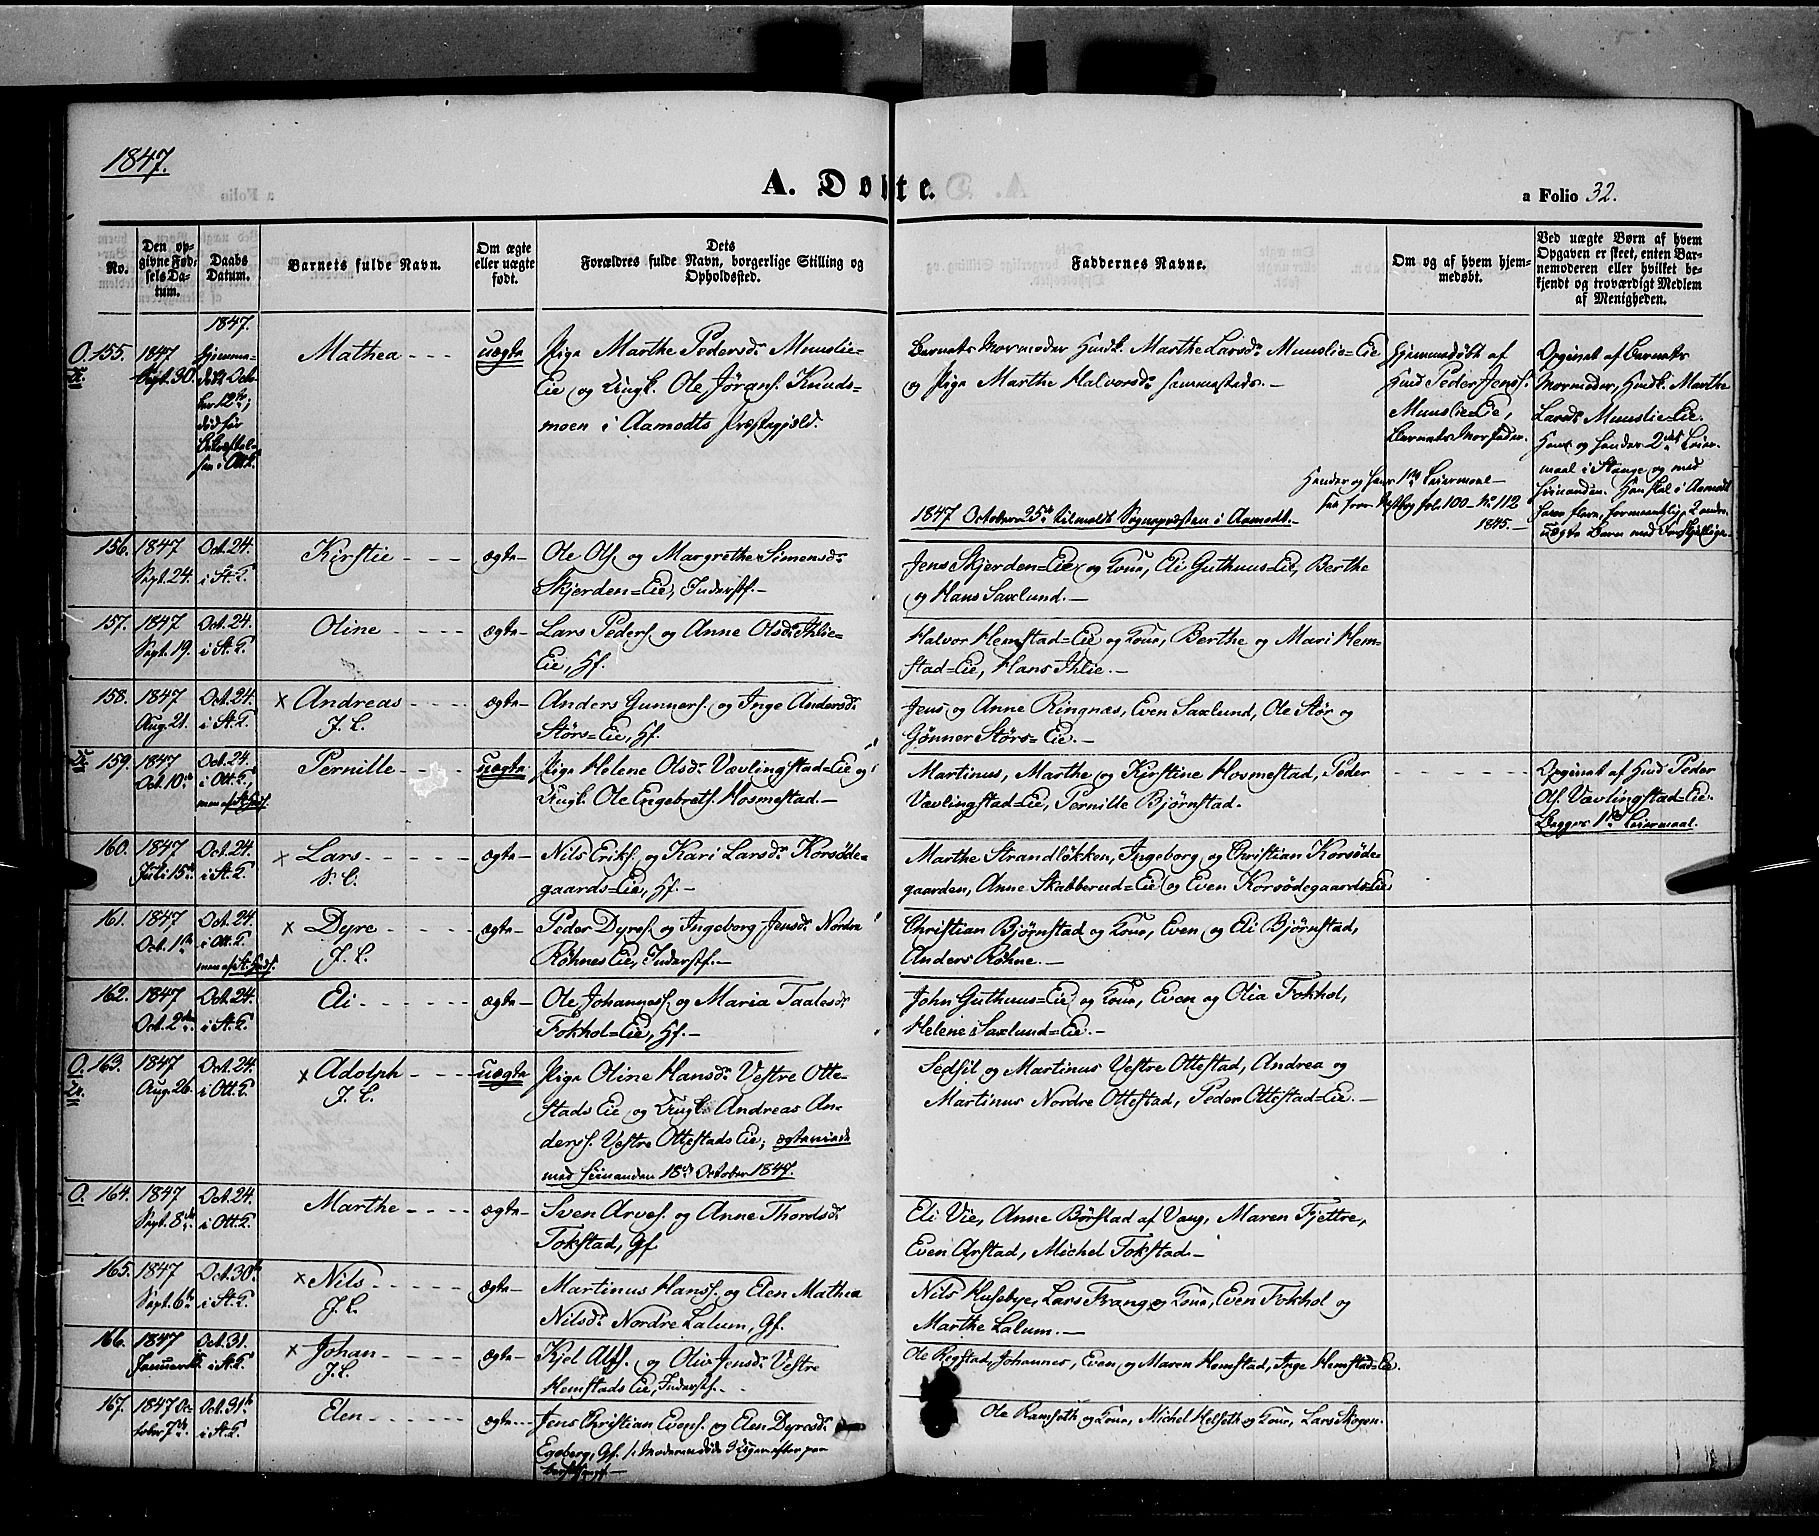 1847.
A. Døbte.
a Folio 32.
No.
Den opgivne Fødsels Datum.
Daabs Datum.
Barnets fulde Navn.
Om ægte eller uægte født.
Dets Forældres fulde Navn, borgerlige Stilling og Opholdsted.
Faddernes Navne.
Om og af hvem hjemmedøbt.
Ved uægte Børn af hvem Opgaven er skeet, enten Barnemoderen eller hvilket bekjendt og troværdigt Medlem af Menigheden.
1847.
155. 1847 Sept. 30.
Hjemmedøbt October 12te;
Mathea
uægte
Pige Marthe Pedersdr. Munslie=
Eie og Ungk. Ole Jørans. Knuds-
moen i Aamodts Præstegjæld.
Barnets Mormoder Husk. Marthe Larsdr. Munslie=Eie
og Pige Marthe Halvorsdr. sammesteds.
Hjemmedøbt af
Husd. Peder Jenss.
Munslie=Eie,
Barnets Morfader.
Opgivet af Barnets
Mormoder, Husk. Marthe
Larsdr. Munslie=Eie.
Hans og hendes 2det Leier-
maal i Stange og med
hinanden. Han skal i Aamodt
Hendes og Hans 1ste Leiermaal
fol. 100 No. 112
1845.
1847 October 25de tilmeldt Sognepræsten i Aamodt.
156. 1847 Sept. 24.
Oct. 24. i St. K.
Kirstie
ægte
Ole Ols. og Margrethe Simensdr.
Skjerden=Eie, Inderstf.
Jens Skjerden=Eie og Kone, Eli Guthuus=Eie, Berthe
og Hans Saxlund.
157. 1847 Sept. 19.
Oct. 24. i St. K.
Oline
ægte
Lars Peders. og Anne Olsdr. Ihlie=
Eie, Hf.
Halvor Hemstad=Eie og Kone, Berthe og Mari Hem-
stad=Eie, Hans Ihlie.
158. 1847 Aug. 21.
Oct. 24. i St. K.
x Andreas
J. C.
ægte
Anders Gunners. og Inge Andersdr.
Störs=Eie, Hf.
Jens og Anne Ringnæs, Even Saxlund, Ole Stör og
Gönner Störs=Eie.
159. 1847 Oct. 10de
Oct. 24. i Ott. K.
Pernille
uægte
Pige Helene Olsdr. Vævlingstad=Eie og
Ungk. Ole Engebrets. Hosmestad.
Martinus, Marthe og Kirstine Hosmestad, Peder
Vævlingstad=Eie, Pernille Bjørnstad.
Opgivet af Husd. Peder
Ols. Vævlingstad=Eie.
Begges 1ste Leiermaal.
160. 1847 Juli 15de
Oct. 24. i St. K.
x Lars
S. C.
ægte
Nils Eriks. og Kari Larsdr. Korsøde-
gaards=Eie, Hf.
Marthe Strandløkken, Ingeborg og Christian Korsøde-
gaarden, Anne Skabberud=Eie og Even Korsødegaards=Eie
161. 1847 Oct. 1ste
Oct. 24. i Ott. K.
x Dyre
J. C.
ægte
Peder Dyres. og Ingeborg Jensdr. Nordre
Röhnes Eie, Inderstf.
Christian Bjørnstad og Kone, Even og Eli Bjørnstad,
Anders Röhne.
162. 1847 Oct. 2den
Oct. 24. i St. K.
Eli
ægte
Ole Johanness. og Maria Taalesdr.
Fokhol=Eie, Hf.
John Guthuus=Eie og Kone, Even og Olia Fokhol,
Helene Saxlund=Eie.
O. 163. 1847 Aug. 26.
Oct. 24. i Ott. K.
x Adolph
J. C.
uægte
Pige Oline Hansdr. Vestre Otte-
stads Eie og Ungk. Andreas An-
derss. Vestre Ottestads Eie; ægteviede
med hinanden 18de October 1847.
Sedsil og Martinus Vestre Ottestad, Andrea og
Martinus Nordre Ottestad, Peder Ottestad=Eie.
O. 164. 1847 Sept. 8de
Oct. 24. i Ott. K.
Marthe
ægte
Sven Arves. og Anne Thordsdr.
Tokstad, Gf.
Eli Vie, Anne Børstad af Vang, Maren Fjettre,
Even Arstad, Michel Tokstad.
165. 1847 Sept. 6te
Oct. 30te i St. K.
x Nils
J. C.
ægte
Martinus Hanss. og Elen Mathea
Nilsdr. Nordre Lalum, Gf.
Nils Huseby, Lars Frang og Kone, Even Fokhol og
Marthe Lalum.
166. 1847
Oct. 31. i St. K.
x Johan
J. C.
ægte
Kjel Alfs. og Oliv Jensdr. Vestre
Hemstads Eie, Inderstf.
Ole Rogstad, Johannes, Even og Maren Hemstad, Inge Hemstad=Eie.
167. 1847 October 7de
Oct. 31te i St. K.
Elen
ægte
Jens Christian Evens. og Elen Dyresdr.
Egeberg, Gf.
Ole Ramseth og Kone, Michel Helseth og Kone, Lars Skogen.